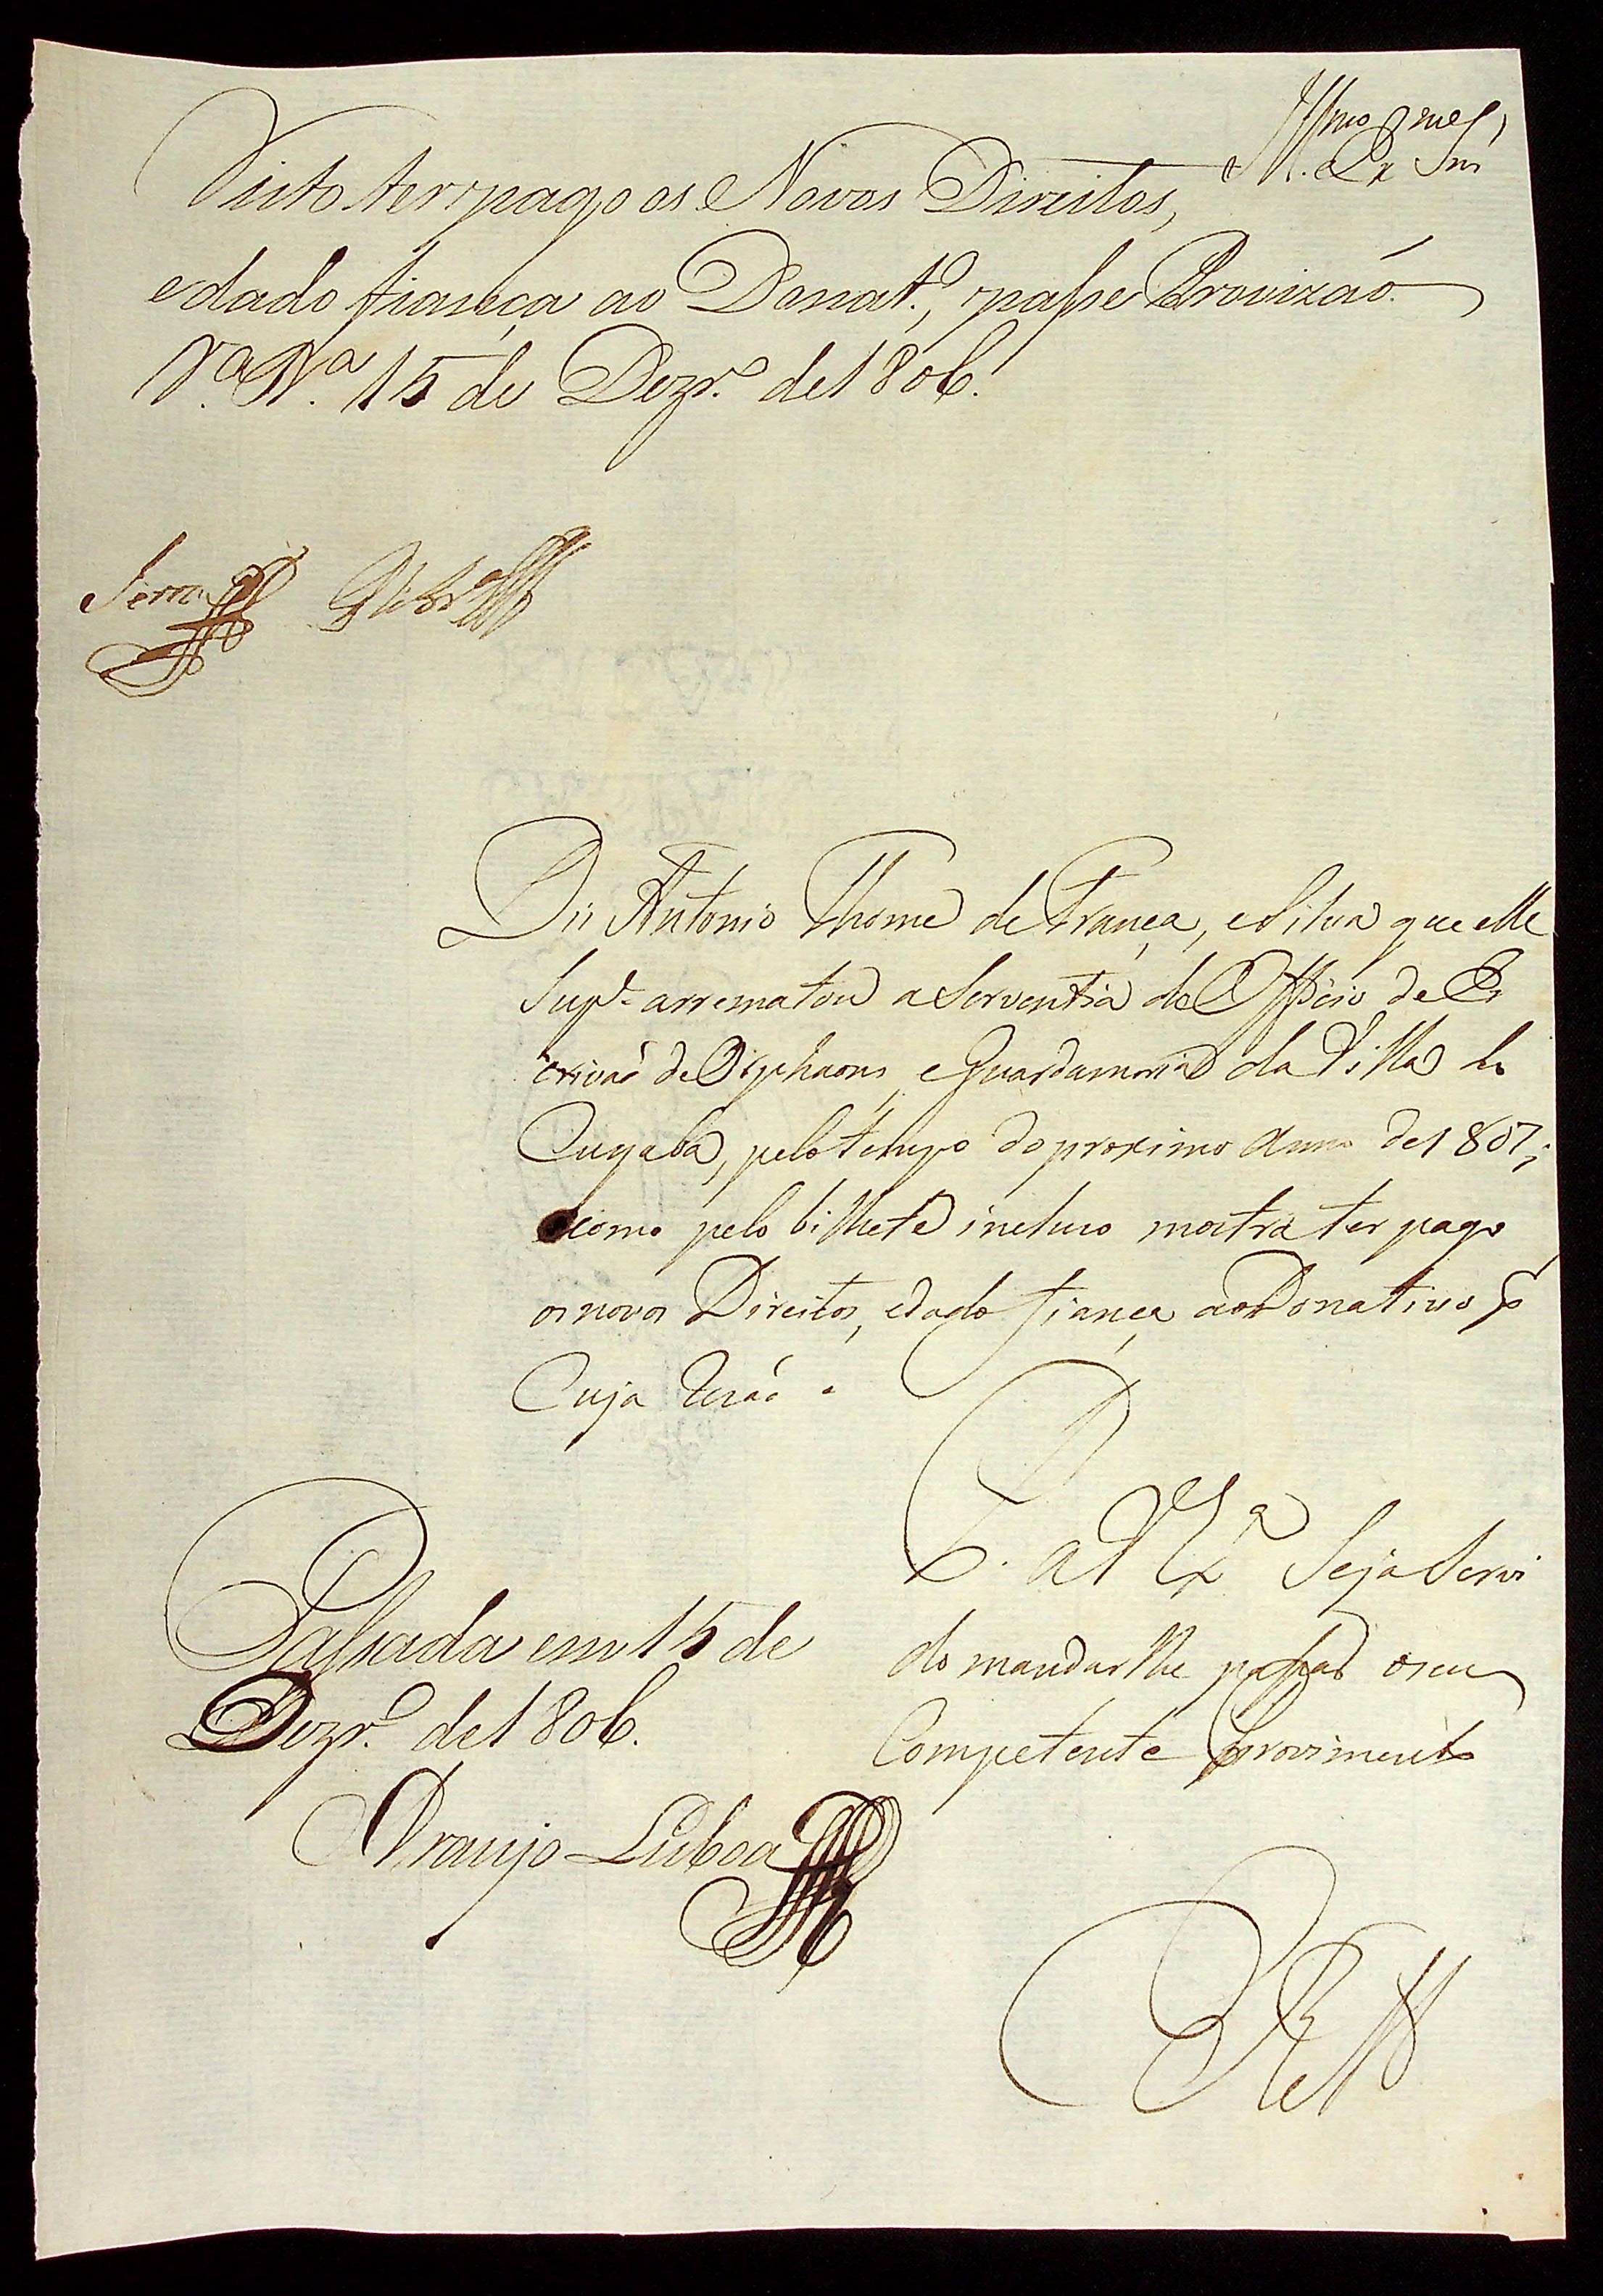 Ill.mos e Ex.mos Snr.es
Visto ter pago os Novos Direitos,
e dado fiança ao Donat.o, passe Provizaó.
V.a B.a 15 de Dezr.o de 1806.
Diz Antonio Thome de França, e Silva que elle
Sup.e arrematou a Serventia do Officio de Es
crivaõ de Orphaons, e Guardamoria da Villa do
Cuyaba, pelo tempo do proximo Anno de 1807;
e como pelo bilhete incluso mostra ter pago
os novos Direitos, e dado fiança ao Donativo p
Cuja rezaõ
P. a V Ex.a Seja Servi
do mandar lhe passar o seu
Competente Provimento
Passada em 15 de
Dezr.o de 1806.
Araujo Lisboa
E R M